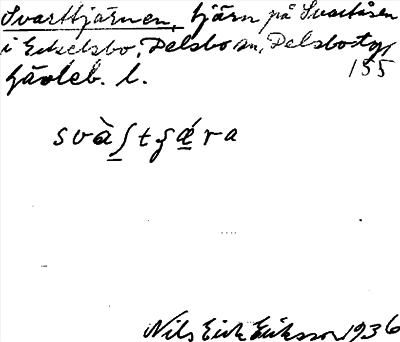 Svarttjärnen, tjärn på Svartåsen
i Eckelsbo, Delsbo sn, Delsbo tg,
Gävleb. l. 155
svàʃtʃǽra
Nils Erik Eriksson 1936